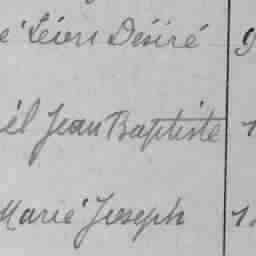 é Léon Désiré 9
ël Jean Baptiste 1
Marie Joseph 1.